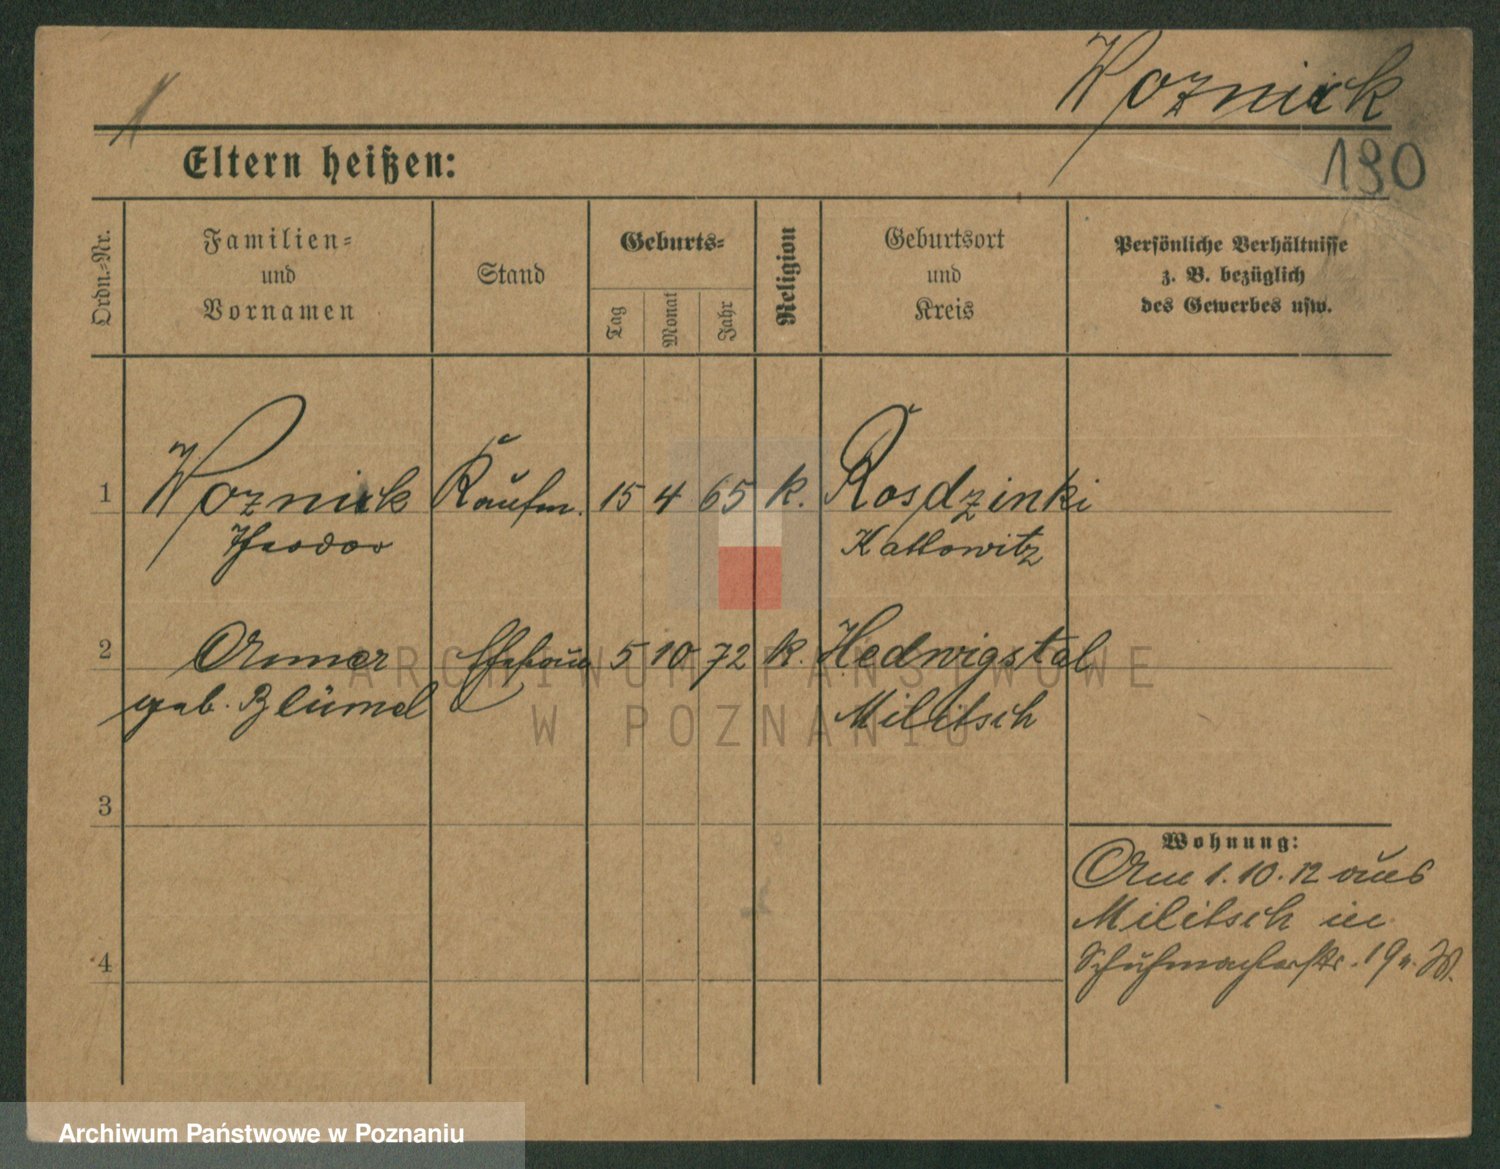 Woznick
190
Eltern heißen:
Ordn.-Nr.
Familien-
und
Vornamen
Stand
Geburts-
Tag
Monat
Jahr
Religion
Geburtsort
und
Kreis
Persönliche Verhältnisse
z. B. bezüglich
des Gewerbes usw.
1 Woznick Kaufm. 15 4 65 k. Rosdzinki
Theodor Kattowitz
2 Ehefrau 5 10 72 k. Hedwigstal
geb. Blümel Militsch
3
Wohnung:
Am 1.10.12 aus
Militsch in
4
Schuhmacherstr. 19
ARCHIWUM PAŃSTWOWE
W POZNANIU
Archiwum Państwowe w Poznaniu